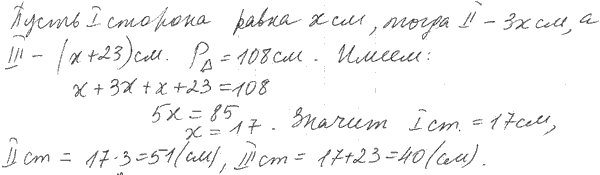 Пусть I сторона равна x см, тогда II – 3x см, а
III – (x+23) см. P△ = 108 см. Имеем:
x + 3x + x + 23 = 108
5x = 85
x = 17. Значит I ст. = 17 см,
II ст = 17·3 = 51 (см), III ст = 17+23 = 40 (см).